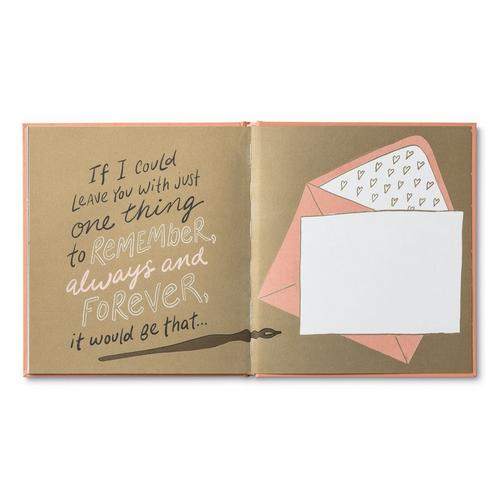 If I could
leave you with just
one thing
to REMEMBER,
always and
FOREVER,
it would be that...